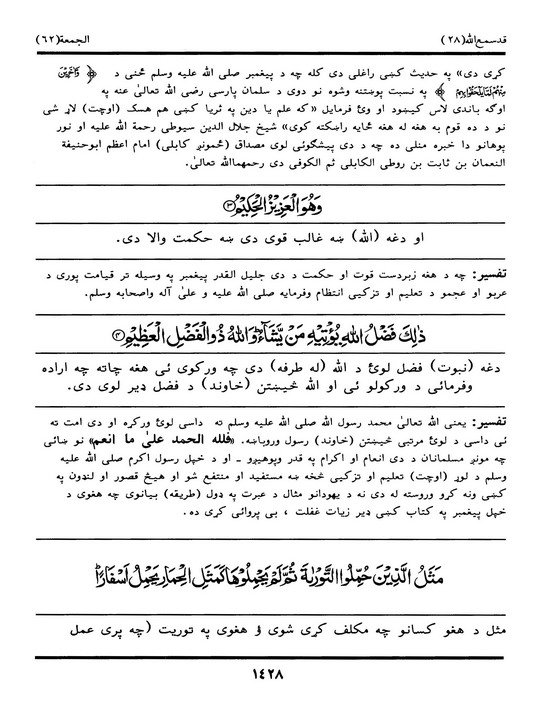 قدسمع الله (٢٨)
الجمعة (٦٢)
کړی دی» په حدیث کښی راغلی دی کله چه د پیغمبر صلی الله علیه وسلم څخی د ﴿ وَّاٰخَرِیْنَ
مِنْهُمْ لَمَّا یَلْحَقُوْا بِهِمْ ﴾ په نسبت پوښتنه وشوه نو دوی د سلمان پارسی رضی الله تعالیٰ عنه په
اوګه باندی لاس کیښود او وئ فرمایل «که علم یا دین په ثریا کښی هم هسک (اوچت) لاړ شی
نو د ده قوم به هغه له هغه ځایه راښکته کوی» شیخ جلال الدین سیوطی رحمة الله علیه او نور
پوهانو دا خبره منلی ده چه د دی پیشګوئی لوی مصداق (ځمونږ کابلی) امام اعظم ابوحنیفة
النعمان بن ثابت بن روطی الکابلی ثم الکوفی دی رحمهماالله تعالیٰ.
وَهُوَ الْعَزِیْزُ الْحَکِیْمُ ﴿۳﴾
او دغه (الله) ښه غالب قوی دی ښه حکمت والا دی.
تفسیر: چه د هغه زبردست قوت او حکمت د دی جلیل القدر پیغمبر په وسیله تر قیامت پوری د
عربو او عجمو د تعلیم او تزکیی انتظام وفرمایه صلی الله علیه و علیٰ آله واصحابه وسلم.
ذٰلِکَ فَضْلُ اللهِ یُؤْتِیْهِ مَنْ یَّشَآءُ ؕ وَاللهُ ذُوالْفَضْلِ الْعَظِیْمِ ﴿۴﴾
دغه (نبوت) فضل لوئ د الله (له طرفه) دی چه ورکوی ئی هغه چاته چه اراده
وفرمائی د ورکولو ئی او الله څښتن (خاوند) د فضل ډیر لوی دی.
تفسیر: یعنی الله تعالیٰ محمد رسول الله صلی الله علیه وسلم ته داسی لوئ ورکره او دی امت ته
ئی داسی د لوئ مرتبی څښتن (خاوند) رسول وروباښه. «فلله الحمد علیٰ ما انعم» نو ښائی
چه مونږ مسلمانان د دی انعام او اکرام په قدر وپوهیږو ـ او د خپل رسول اکرم صلی الله علیه
وسلم د لوړ (اوچت) تعلیم او تزکیی څخه ښه مستفید او منتفع شو او هیڅ قصور او لنډون په
کښی ونه کړو وروسته له دی نه د یهودانو مثال د عبرت په ډول (طریقه) بیانوی چه هغوی د
خپل پیغمبر په کتاب کښی ډیر زیات غفلت ، بی پروائی کړی ده.
مَثَلُ الَّذِیْنَ حُمِّلُوا التَّوْرٰىةَ ثُمَّ لَمْ یَحْمِلُوْهَا کَمَثَلِ الْحِمَارِ یَحْمِلُ اَسْفَارًا ؕ
مثل د هغو کسانو چه مکلف کړی شوی ؤ هغوی په توریت (چه پری عمل
١٤٢٨